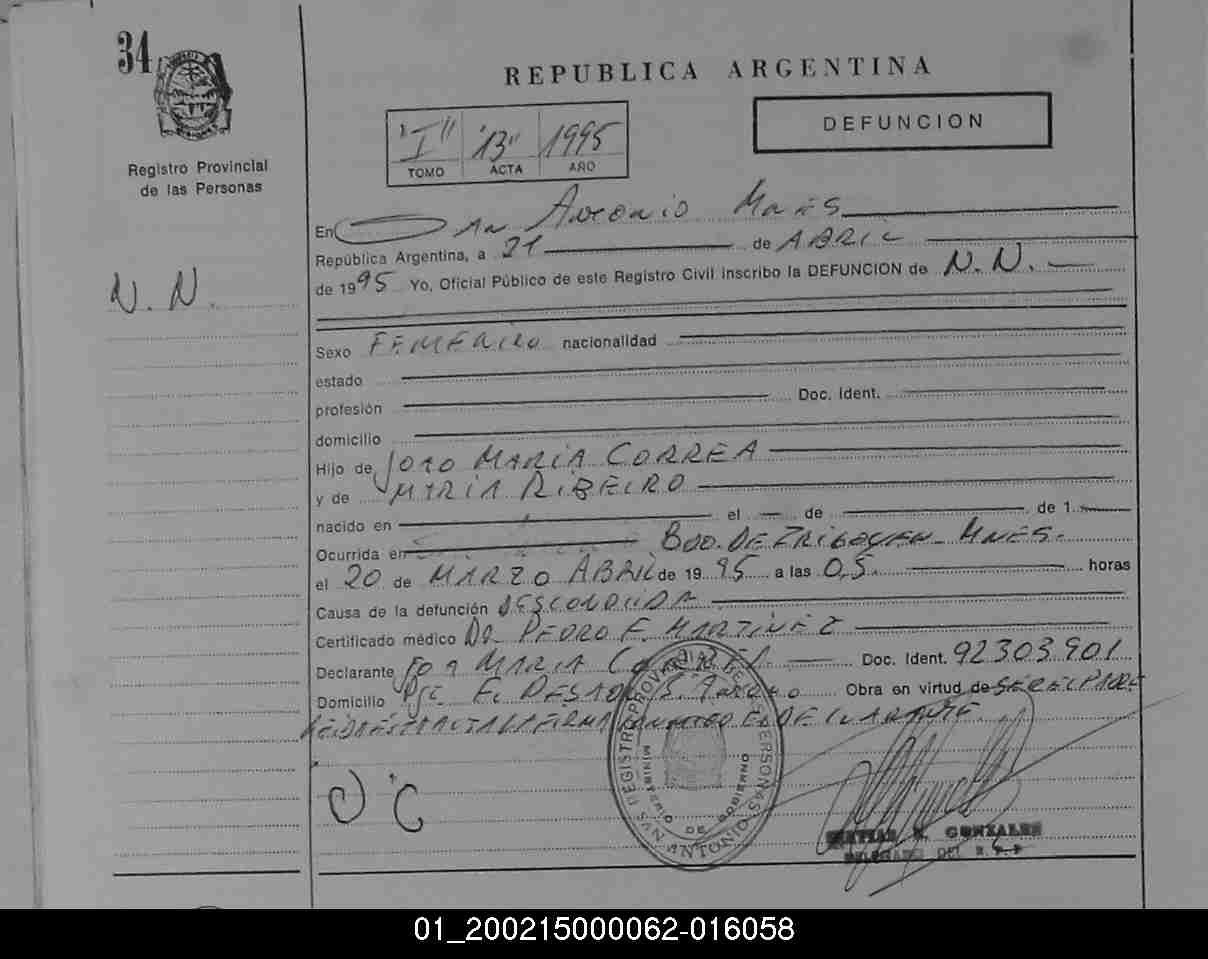 34
REPUBLICA ARGENTINA
"I" "13" 1995
TOMO ACTA AÑO
DEFUNCION
Registro Provincial
de las Personas
N. N.
En San Antonio Mnes
República Argentina, a 21 de ABRIL
de 1995 Yo, Oficial Público de este Registro Civil inscribo la DEFUNCION de N. N.
Sexo FEMENINO nacionalidad
estado
profesión Doc. Ident.
domicilio
Hijo de JOAO MARIA CORREA
y de MARIA RIBEIRO
nacido en el de de 1
Ocurrida en BDO. DE IRIGOYEN - MNES.
el 20 de MARZO ABRIL de 1995 a las 0,5 horas
Causa de la defunción DESCONOCIDA
Certificado médico DR. PEDRO F. MARTINEZ
Declarante JOAO MARIA CORREA Doc. Ident. 92303901
Domicilio Pje. S. Antonio Obra en virtud de SER EL PADRE
FIRMA CONMIGO EL DECLARANTE
REGISTRO PROVINCIAL DE LAS PERSONAS
MINISTERIO DE GOBIERNO
ANTONIO
GONZALES
DELEGADO DEL R. P. P
01_200215000062-016058